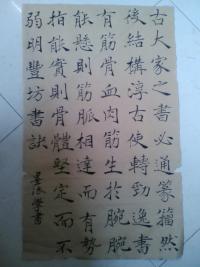 古大家之書必通篆籀然
後結構淳古使轉勁逸書
有筋骨血肉筋生於腕腕
能懸則筋脈相連而有勢
指能實則骨體堅定而不
弱明豐坊書訣
學書